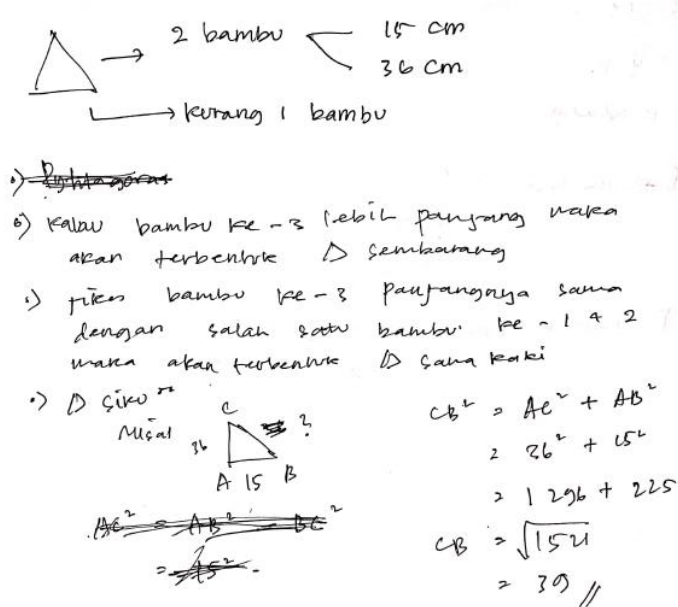 2 bambu 15 cm
36 cm
kurang 1 bambu
Kalau bambu ke-3 lebih panjang maka
akan terbentuk △ sembarang
Jika bambu ke-3 panjangnya sama
dengan salah satu bambu ke-1 & 2
maka akan terbentuk △ sama kaki
△ siku"
Misal
C
36
?
A 15 B
CB² = AC² + AB²
= 36² + 15²
= 1296 + 225
CB = √1521
= 39 //